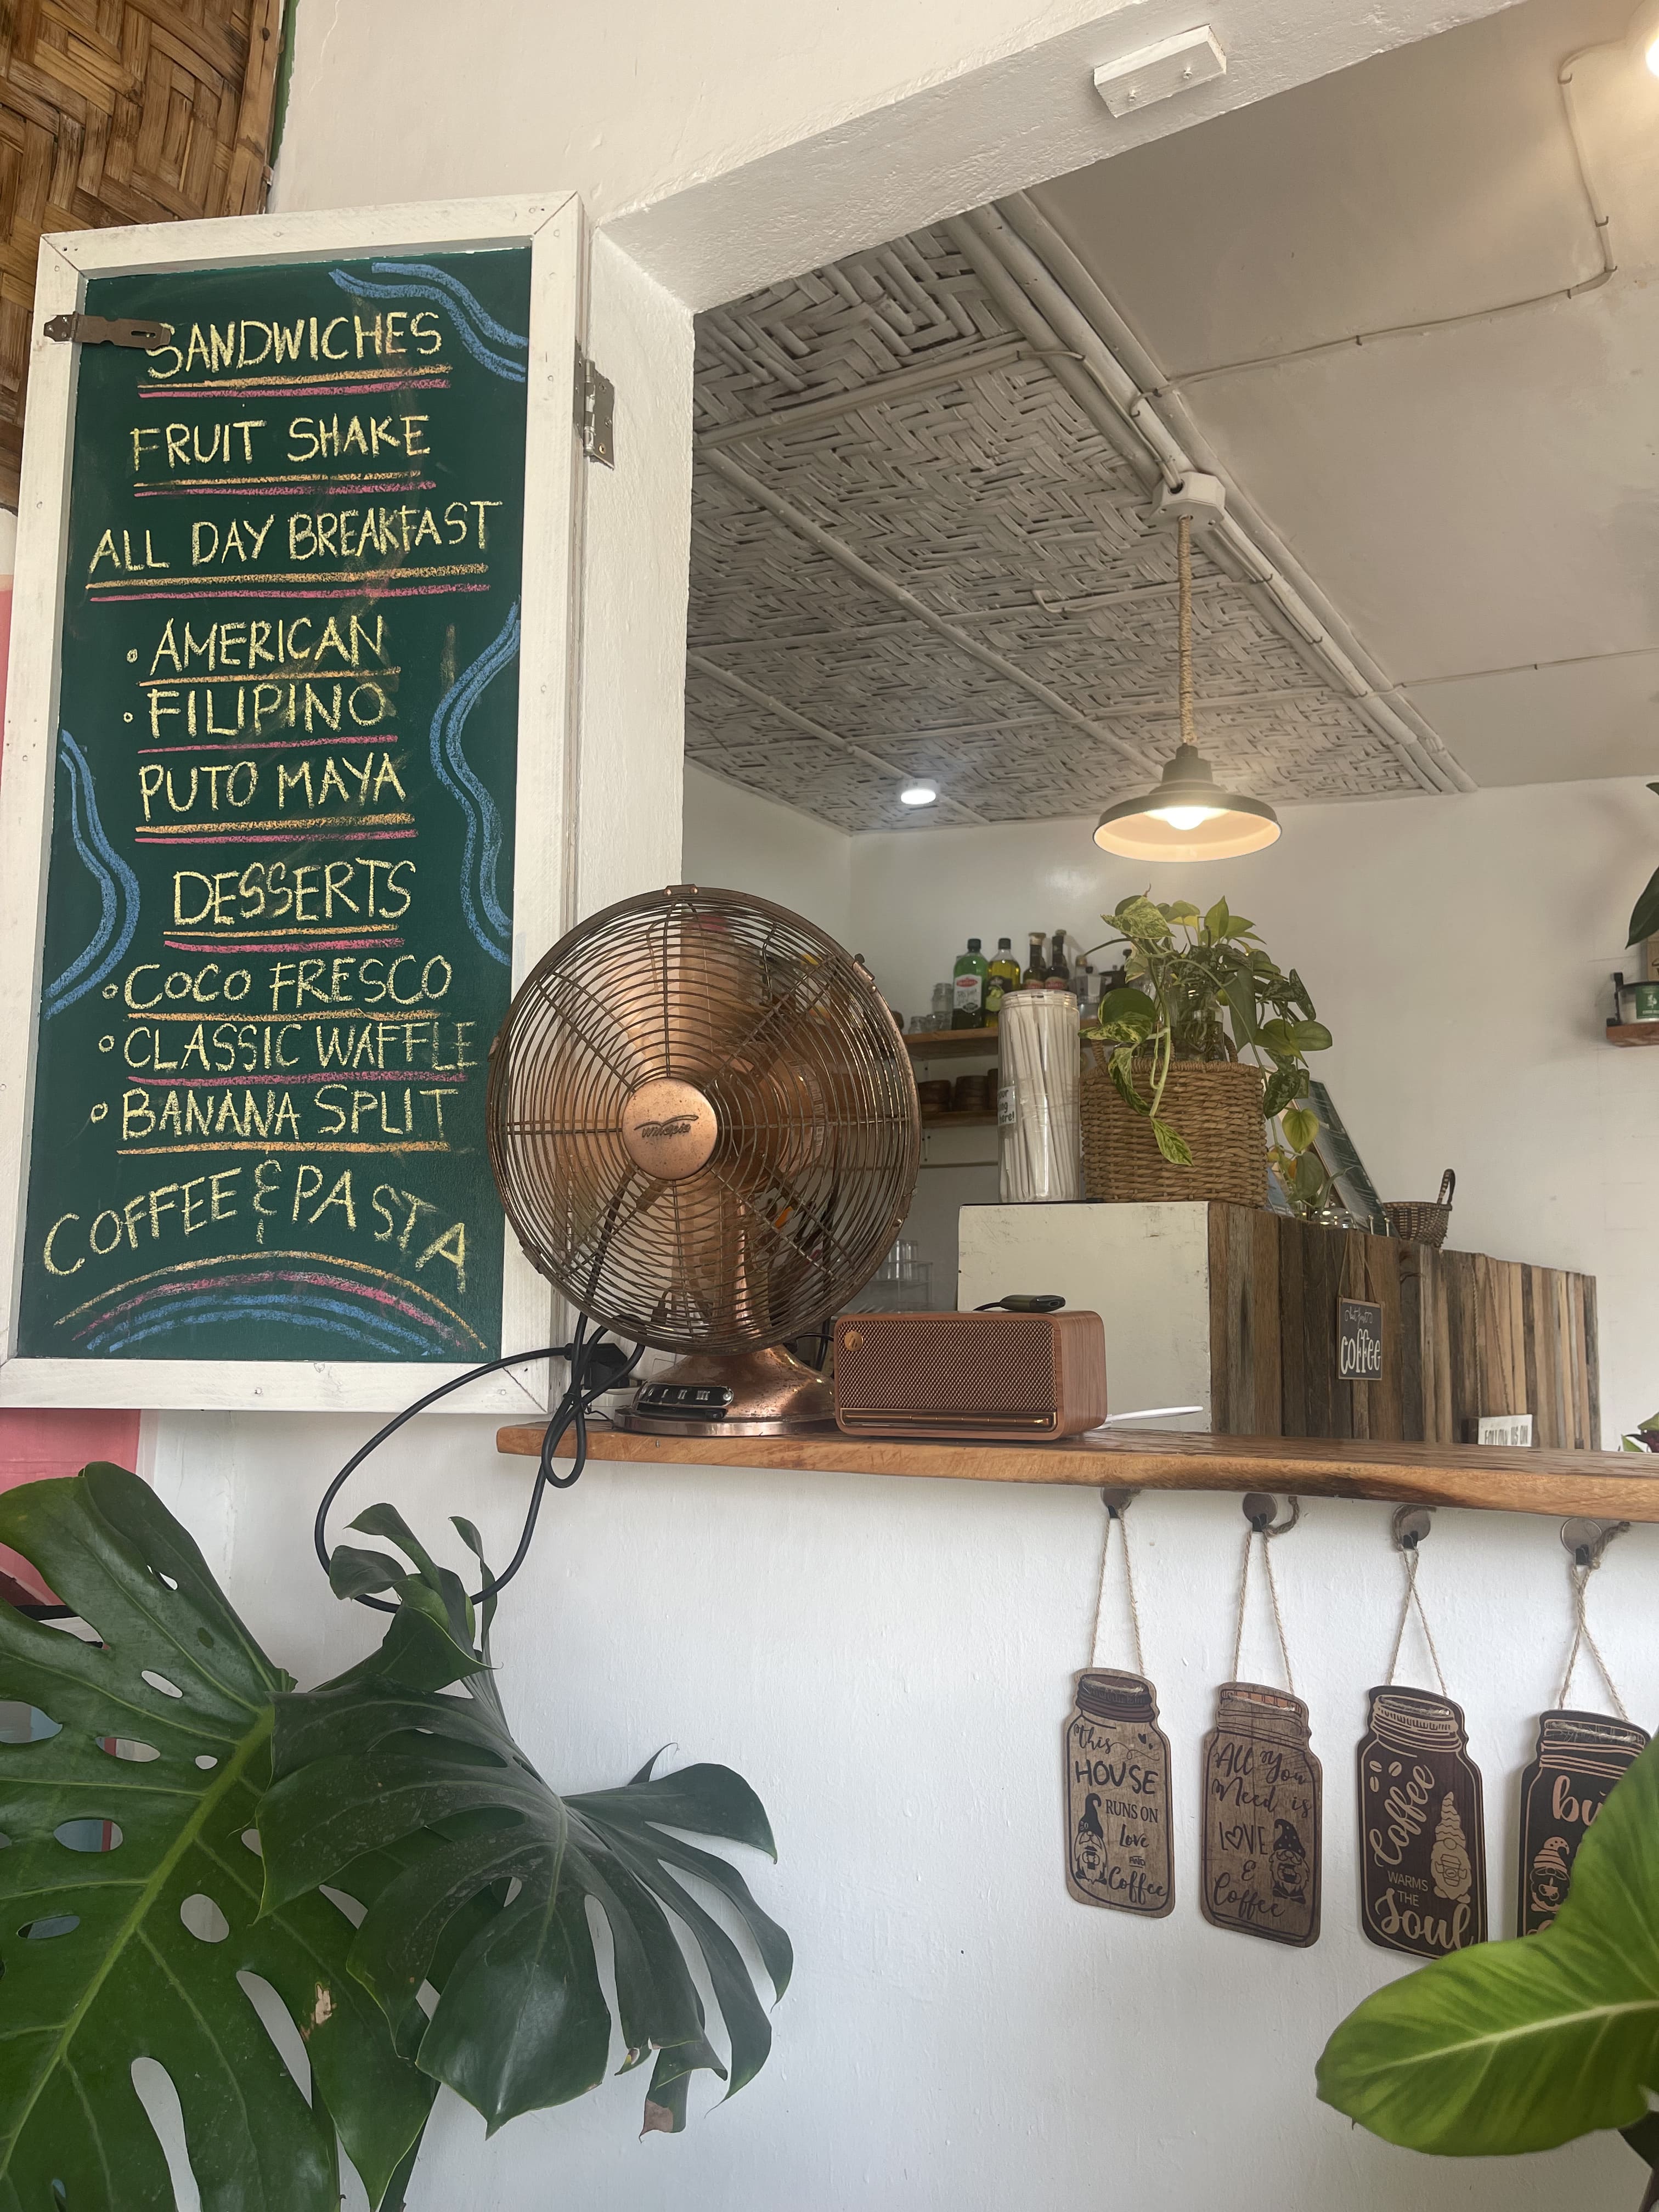 SANDWICHES
FRUIT SHAKE
ALL DAY BREAKFAST
AMERICAN
FILIPINO
PUTO MAYA
DESSERTS
COCO FRESCO
CLASSIC WAFFLE
BANANA SPLIT
COFFEE & PASTA
coffee
FOLLOW US ON
this
HOUSE
RUNS ON
Love
AND
Coffee
All You
Need is
LOVE
&
Coffee
Coffee
WARMS
THE
Soul